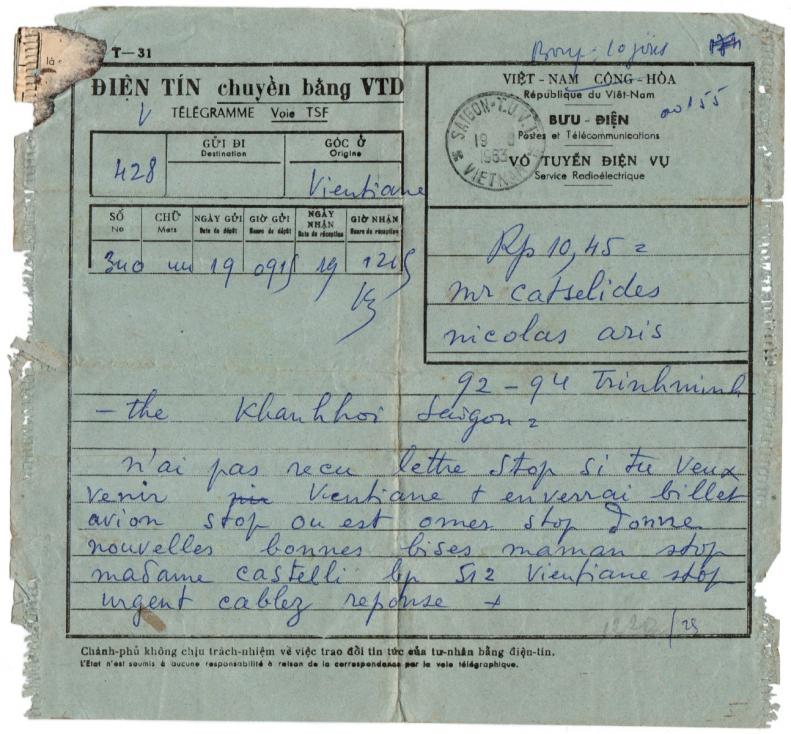 là
T-31
ĐIỆN TÍN chuyển bằng VTĐ
TÉLÉGRAMME Voie TSF
VIỆT-NAM CỘNG-HÒA
République du Việt-Nam
BƯU-ĐIỆN
Postes et Télécommunications
VÔ TUYẾN ĐIỆN VỤ
Service Radioélectrique
00155
SAIGON-T.U.V.
19
1963
VIETNAM
GỬI ĐI
Destination
GỐC Ở
Origine
428
Vientiane
SỐ
No
CHỮ
Mots
NGÀY GỬI
Date de dépôt
GIỜ GỬI
Heure de dépôt
NGÀY NHẬN
Date de réception
GIỜ NHẬN
Heure de réception
340 19 0915 19 1215
Rp 10,45 =
mr catselides
nicolas aris
92-94 Trinhminh
-the Khanhhoi Saigon =
n'ai pas recu lettre stop si tu veux
venir Vientiane t enverrai billet
avion stop ou est omer stop donne
nouvelles bonnes bises maman stop
madame castelli bp 512 Vientiane stop
urgent cablez reponse +
1220/25
Chánh-phủ không chịu trách-nhiệm về việc trao đổi tin tức của tư-nhân bằng điện-tín.
L'Etat n'est soumis à aucune responsabilité à raison de la correspondance par la voie télégraphique.